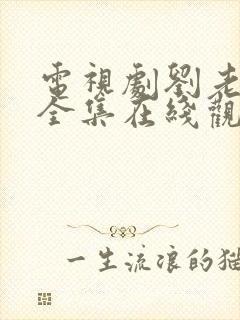 電視劇劉老
全集在綫觀
一生流浪的猫